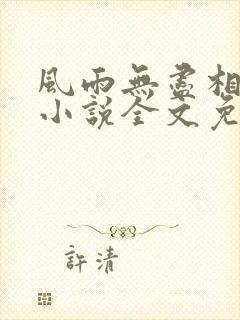 風雨無盡相
小說全文免
許清